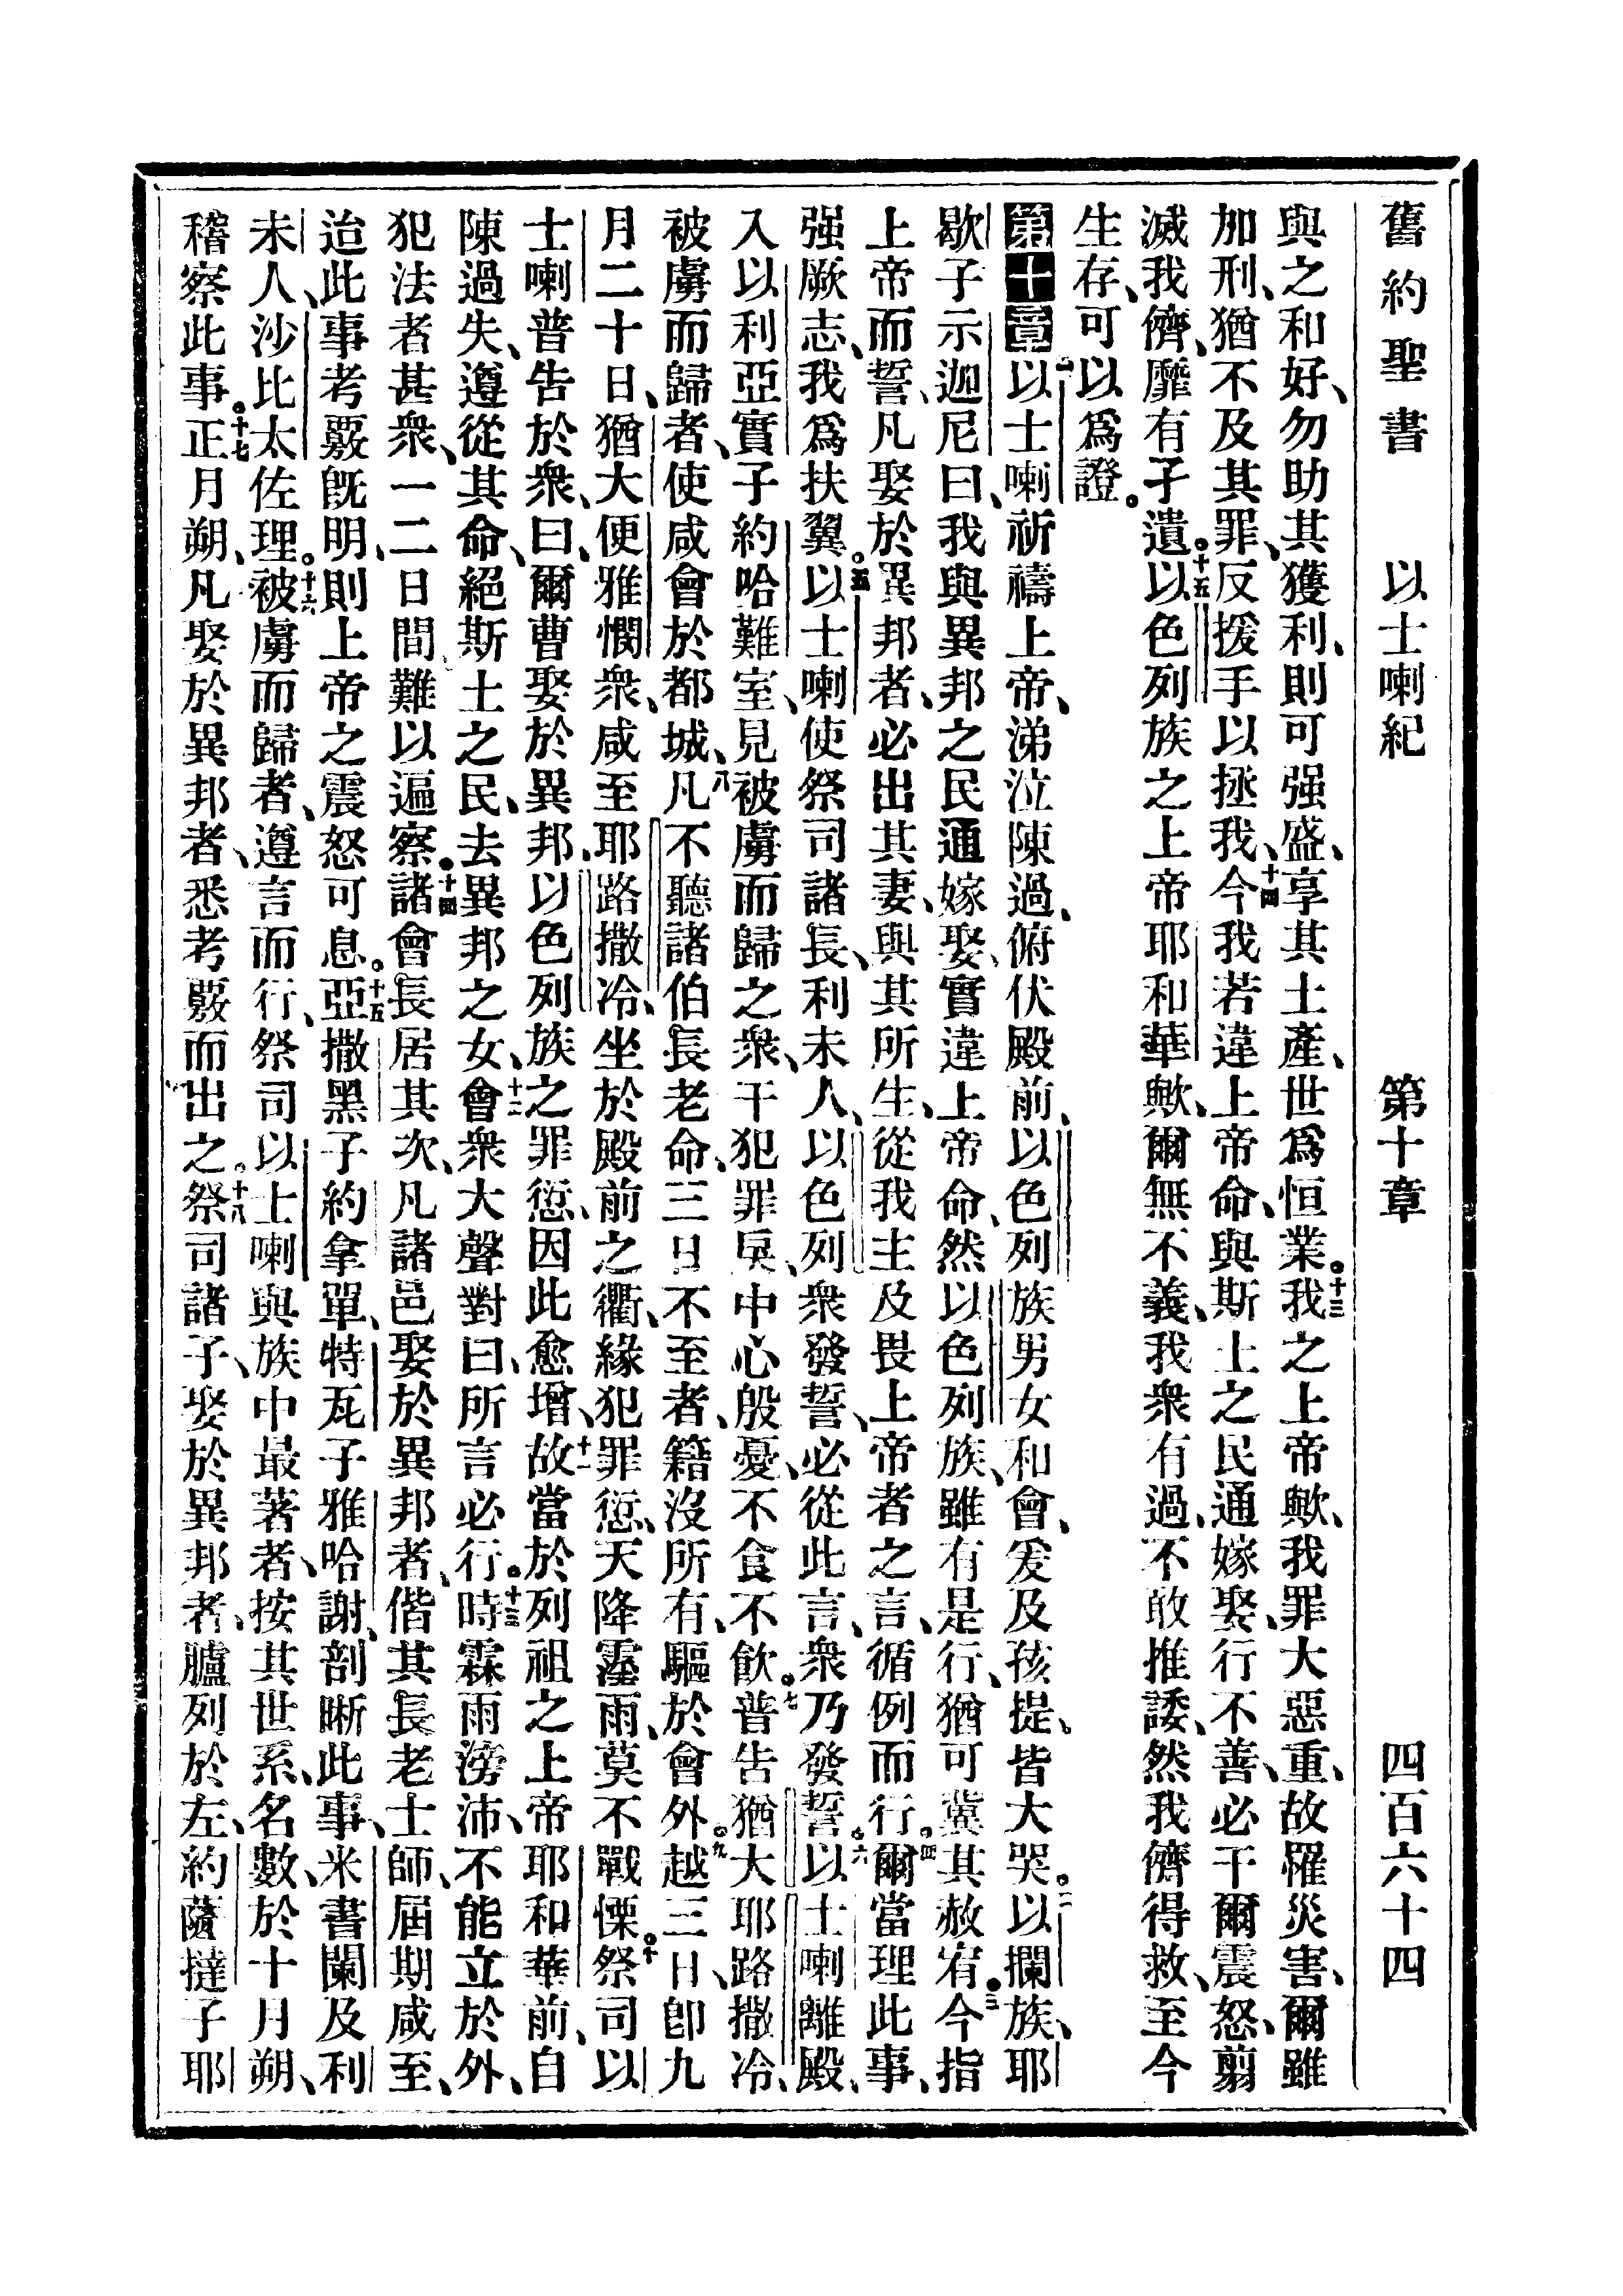 舊約聖書 以士喇紀 第十章 四百六十四
與之和好、勿助其獲利、則可强盛、享其土產、世爲恒業。十三我之上帝歟、我罪大惡重、故罹災害、爾雖
加刑、猶不及其罪、反援手以拯我、十四今我若違上帝命、與斯土之民通嫁娶、行不善、必干爾震怒、翦
滅我儕、靡有孑遺。十五以色列族之上帝耶和華歟、爾無不義、我衆有過、不敢推諉、然我儕得救、至今
生存、可以爲證。
第十章一以士喇祈禱上帝、涕泣陳過、俯伏殿前、以色列族男女和會、爰及孩提、皆大哭。二以攔族、耶
歇子示迦尼曰、我與異邦之民通嫁娶、實違上帝命、然以色列族、雖有是行、猶可冀其赦宥。三今指
上帝而誓、凡娶於異邦者、必出其妻、與其所生、從我主及畏上帝者之言、循例而行。四爾當理此事、
强厥志、我爲扶翼。五以士喇使祭司諸長、利未人、以色列衆發誓、必從此言、衆乃發誓。六以士喇離殿、
入以利亞實子約哈難室、見被虜而歸之衆、干犯罪戾、中心殷憂、不食不飮。七普告猶大耶路撒冷、
被虜而歸者、使咸會於都城、八凡不聽諸伯長老命、三日不至者、籍沒所有、驅於會外。九越三日、卽九
月二十日、猶大便雅憫衆、咸至耶路撒冷、坐於殿前之衢、緣犯罪愆、天降霪雨、莫不戰慄。十祭司以
士喇普告於衆、曰、爾曹娶於異邦、以色列族之罪愆、因此愈增、十一故當於列祖之上帝耶和華前、自
陳過失、遵從其命、絕斯土之民、去異邦之女、十二會衆大聲對曰、所言必行。十三時霖雨滂沛、不能立於外、
犯法者甚衆、一二日間難以遍察。十四諸會長居其次、凡諸邑娶於異邦者、偕其長老士師、屆期咸至、
迨此事考覈旣明、則上帝之震怒可息。十五亞撒黑子約拿單、特瓦子雅哈謝、剖晰此事、米書闌及利
未人、沙比太佐理。十六被虜而歸者、遵言而行、祭司以士喇與族中最著者、按其世系、名數、於十月朔、
稽察此事。十七正月朔、凡娶於異邦者、悉考覈而出之。十八祭司諸子、娶於異邦者、臚列於左、約薩撻子耶